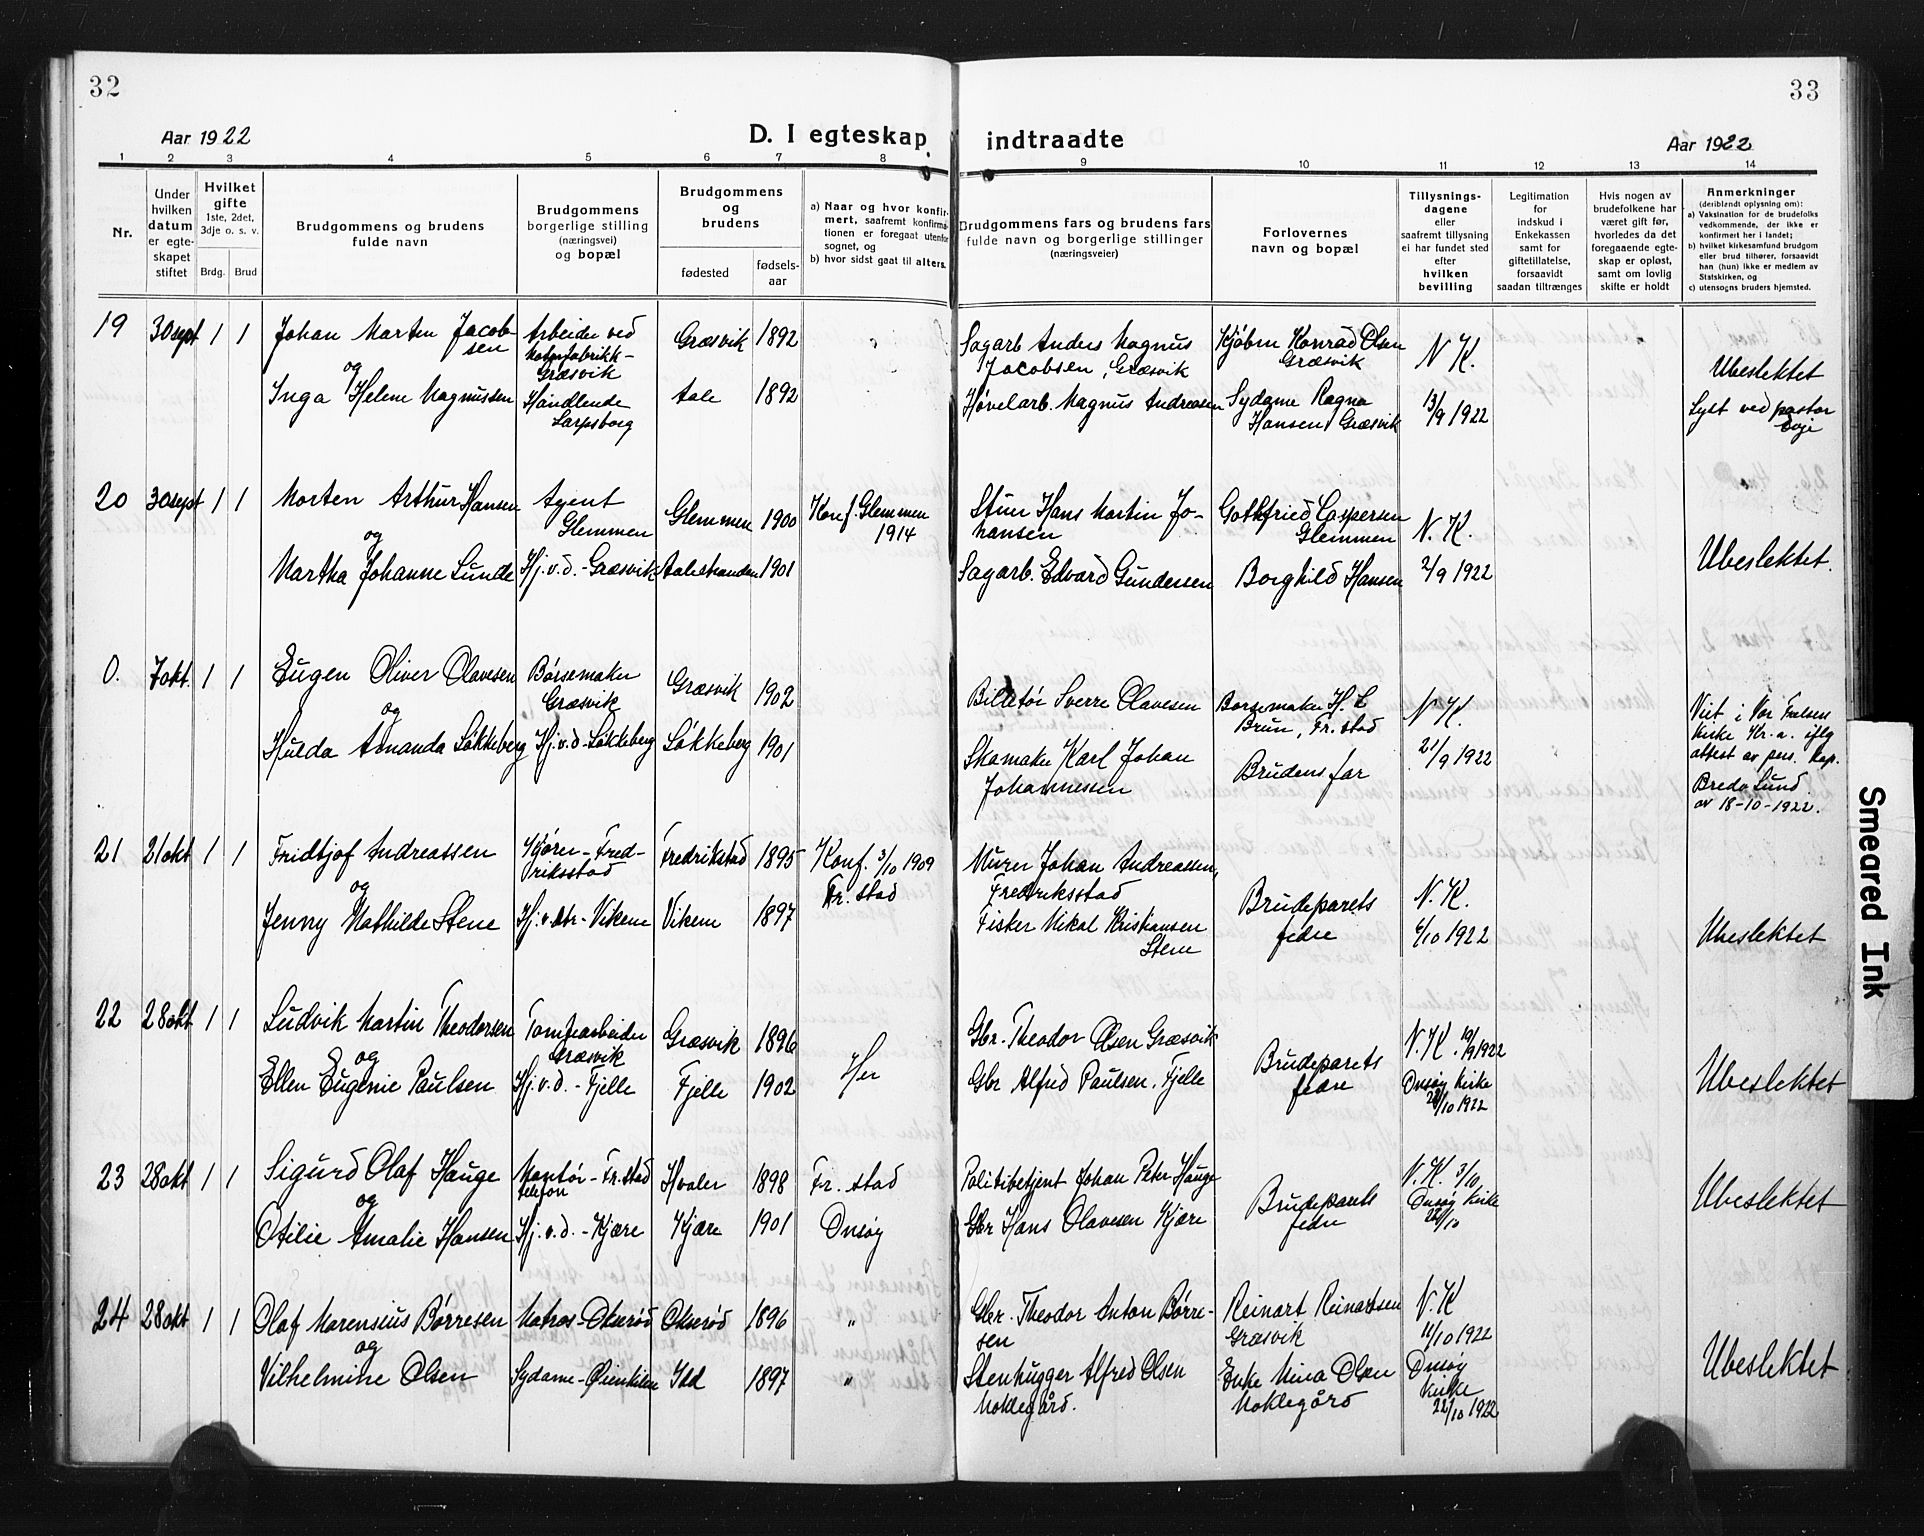 32
33
Aar 1922
D. I egteskap
indtraadte
Aar 1922
1 2 3 4 5 6 7 8 9 10 11 12 13 14
Nr.
Under
hvilken
datum
er egte-
skapet
stiftet
Hvilket
gifte
1ste, 2det,
3dje o. s. v.
Brdg. Brud
Brudgommens og brudens
fulde navn
Brudgommens
borgerlige stilling
(næringsvei)
og bopæl
Brudgommens
og
brudens
fødested
fødsels-
aar
a) Naar og hvor konfir-
mert, saafremt konfirma-
tionen er foregaat utenfor
sognet, og
b) hvor sidst gaat til alters.
Brudgommens fars og brudens fars
fulde navn og borgerlige stillinger
(næringsveier)
Forlovernes
navn og bopæl
Tillysnings-
dagene
eller
saafremt tillysning
ei har fundet sted
efter
hvilken
bevilling
Legitimation
for
indskud i
Enkekassen
samt for
giftetillatelse,
forsaavidt
saadan tiltrænges
Hvis nogen av
brudefolkene har
været gift før,
hvorledes da det
foregaaende egte-
skap er opløst,
samt om lovlig
skifte er holdt
Anmerkninger
(deriblandt oplysning om):
a) Vaksination for de brudefolks
vedkommende, der ikke er
konfirmert her i landet;
b) hvilket kirkesamfund brudgom
eller brud tilhører, forsaavidt
han (hun) ikke er medlem av
Statskirken, og
c) utensogns bruders hjemsted.
19 30 sept 1 1 Johan Marten Jacob-
sen
og
Inga Helene Magnussen
Arbeider ved
Græsvik
Handlende
Sarpsborg
Græsvik 1892
Aale 1892
Sagarb Anders Magnus
Jacobsen, Græsvik
Høvelarb. Magnus Andreasen
Kjøbm Konrad Olsen
Græsvik
Sydame Ragna
Hansen, Græsvik
N. K.
13/9 1922
Ubeslektet
Lyst ved pastor
Evje
20 30 sept 1 1 Morten Arthur Hansen
og
Martha Johanne Lunde
Agent
Glemmen
Hj.v.d. - Græsvik
Glemmen 1900
Aalestranden 1901
Konf. Glemmen
1914
Hans Martin Jo-
hansen
Sagarb. Edvard Gundersen
Gothfried Caspersen
Glemmen
Borghild Hansen
N. K.
2/9 1922
Ubeslektet.
0. 7 okt. 1 1 Eugen Oliver Olavesen
og
Hulda Amanda Løkkeberg
Børsemaker
Græsvik
Hj.v.d - Løkkeberg
Græsvik 1902
Løkkeberg 1901
Billetør Sverre Olavesen
Skomaker Karl Johan
Johannessen
Børsemaker H. C
Brun, Fr.stad
Brudens far
N. K.
21/9 1922
Viet i Vor Frelsers
kirke Kr.a. iflg
attest av pers. kap.
Bredo Lund.
av 18-10-1922.
21 21 okt 1 1 Fridtjof Andreassen
og
Jenny Mathilde Stene
Kjører - Fred-
riksstad
Hj. v. dtr - Vikene
Fredrikstad 1895
Vikene 1897
Konf. 3/10 1909
Fr. stad
Murer Johan Andreassen,
Fredriksstad
Fisker Nikal Kristiansen
Stene
Brudeparets
fedre
N. K.
6/10 1922
Ubeslektet
22 28 okt 1 1 Ludvik Martin Theodorsen
og
Ellen Eugenie Paulsen
Tomtearbeider
Græsvik
Hj.v.d. - Fjelle
Græsvik 1896
Fjelle 1902
Her
Gbr. Theodor Olsen Græsvik
Gbr Alfred Paulsen, Fjelle
Brudeparets
fedre
N. K. 19/9 1922
Onsøy kirke
22/10 1922
Ubeslektet
23 28 okt 1 1 Sigurd Olaf Hauge
og
Otilie Amalie Hansen
Montør - Fr.stad
telefon
Hj.v.d. - Kjære
Hvaler 1898
Kjære 1901
Fr. stad
Onsøy
Politibetjent Johan Peter Hauge
Gbr Hans Olavesen Kjære
Brudeparets
fedre
N. K. 3/10
Onsøy kirke
22/10
Ubeslektet
24 28 okt 1 1 Olaf Marensius Børresen
og
Vilhelmine Olsen
Matros - Okserød
Sydame - Øienkilen
Okserød 1896
Ild 1897
"
"
Gbr. Theodor Anton Børre-
sen
Stenhugger Alfred Olsen
Moklegård.
Reinart Reinartsen
Græsvik
Enke Mina Olsen
Moklegård
N. K
11/10 1922
Onsøy
kirke
22/10 1922
Ubeslektet
Smeared Ink